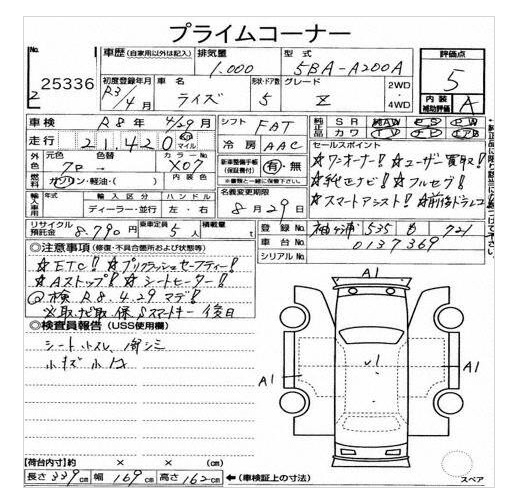 プライムコーナー
No.
2 25336
車歴 (自家用以外は記入) 排気量 型式
1.000 5BA-A200A
初度登録年月 車名 形状・ドア数 グレード 2WD・4WD
R3/4月 ライズ 5 Z
評価点
5
内装補助評価 A
車検 R8年 4/29月 シフト FAT
走行 21,420 km マイル 冷房 AAC
純正品 SR AW PS PW
カワ TV ナビ エアB
外色 元色 色替 カラーNo.
クロ → X07
燃料 ガソリン・軽油・( ) 内装色
新車整備手帳(保証書付) 有・無
※書類と一緒に保管して下さい。
セールスポイント
☆ワンオーナー! ☆ユーザー買取!
☆純正ナビ! ☆フルセグ!
☆スマートアシスト! ☆前後ドラレコ
輸入車用 年式 輸入区分 ハンドル
ディーラー・並行 左・右
名義変更期限
8月29日
リサイクル預託金 8,790円 乗車定員 5人 積載量 t
登録No. 袖ヶ浦 535 る 721
車台No. 0137369
シリアルNo.
◎注意事項 (修復・不具合箇所および状態等)
☆ETC! ☆プリクラッシュセーフティー!
☆Aストップ! ☆シートヒーター!
◎検R8.4.29マデ!
※取、ナビ取、保、Sマートキー 後日
◎検査員報告 (USS使用欄)
シート小スレ、内シミ
小キズ小凹
A1
A1
A1
【荷台内寸】約 × × (cm)
長さ 339cm 幅 169cm 高さ 162cm ←(車検証上の寸法)
スペア